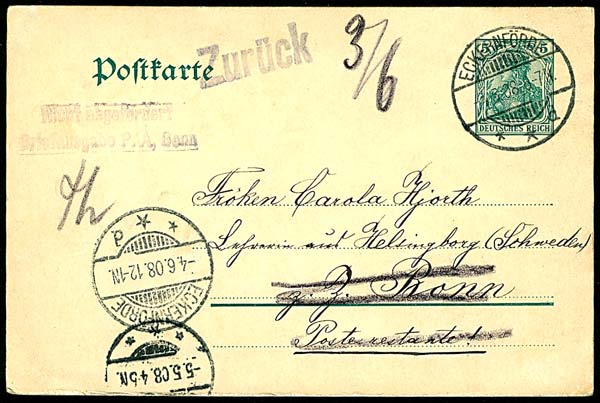 Postkarte
Zurück
3/6
5 5
ECKERNFÖRDE
DEUTSCHES REICH
Nicht abgefordert
Briefausgabe P. A, Bonn
Fröken Carola Hjorth
Lehrerin aus Helsingborg (Schweden)
z. Z. Bonn
Poste restante!
ECKERNFÖRDE
-4.6.08.12-1N.
-5.5.08.4-5N.